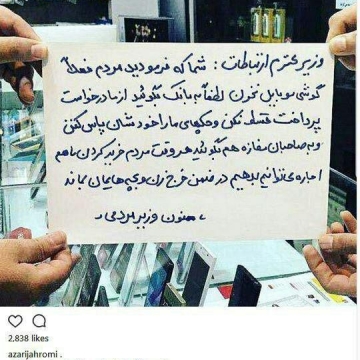 وزیر محترم ارتباطات : شما که فرمودید مردم فعلاً
گوشی موبایل نخرن لطفاً به بانک بگوئید از ما درخواست
پرداخت قسط نکن و چکهای ما را خودشان پاس کنن
و به صاحبان مغازه هم بگوئید هر وقت مردم خرید کردن ما هم
اجاره می توانیم بدهیم در ضمن خرج زن و بچه هایمان بماند
ممنون وزیر مردمی
2,838 likes
azarijahromi .